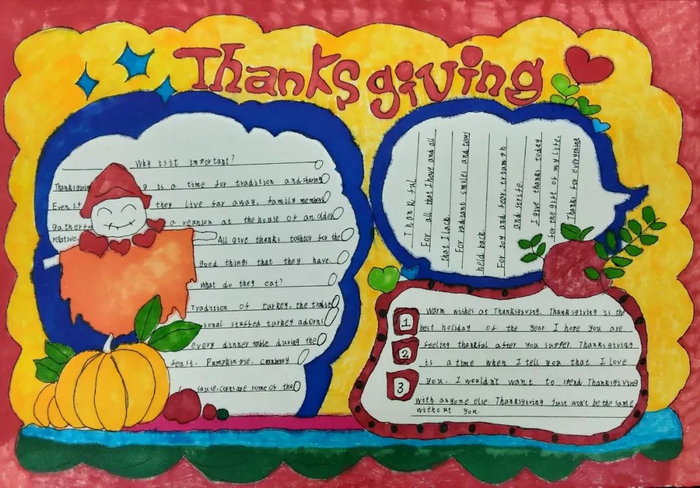 Thanksgiving
Why isit important?
Thanksgiving is a time for tradition and sharing
Even if they live far away, family members
gather for a reunion at the house of an older
relative. All give thanks together for the
good things that they have.
What do they eat?
Tradition of turkey, the tradit
ional stuffed turkey adorns
every dinner table during the
feast. Pumpkin pie, cranberry
sause. corns are some of the
Thankful
For all that I have and all
that I lack.
For radiant smiles and tears
held back.
For joy and tear triumph
and strife.
I give thanks today
for the gift of my life.
Thanks for everything
1
2
3
Warm wishes at Thanksgiving. Thanksgiving is the
best holiday of the year. I hope you are
feeling thankful after you supper. Thanksgiving
is a time when I tell you that I love
you. I wouldn't want to spend Thanksgiving
with anyone else Thanksgiving Just won't be the same
without you